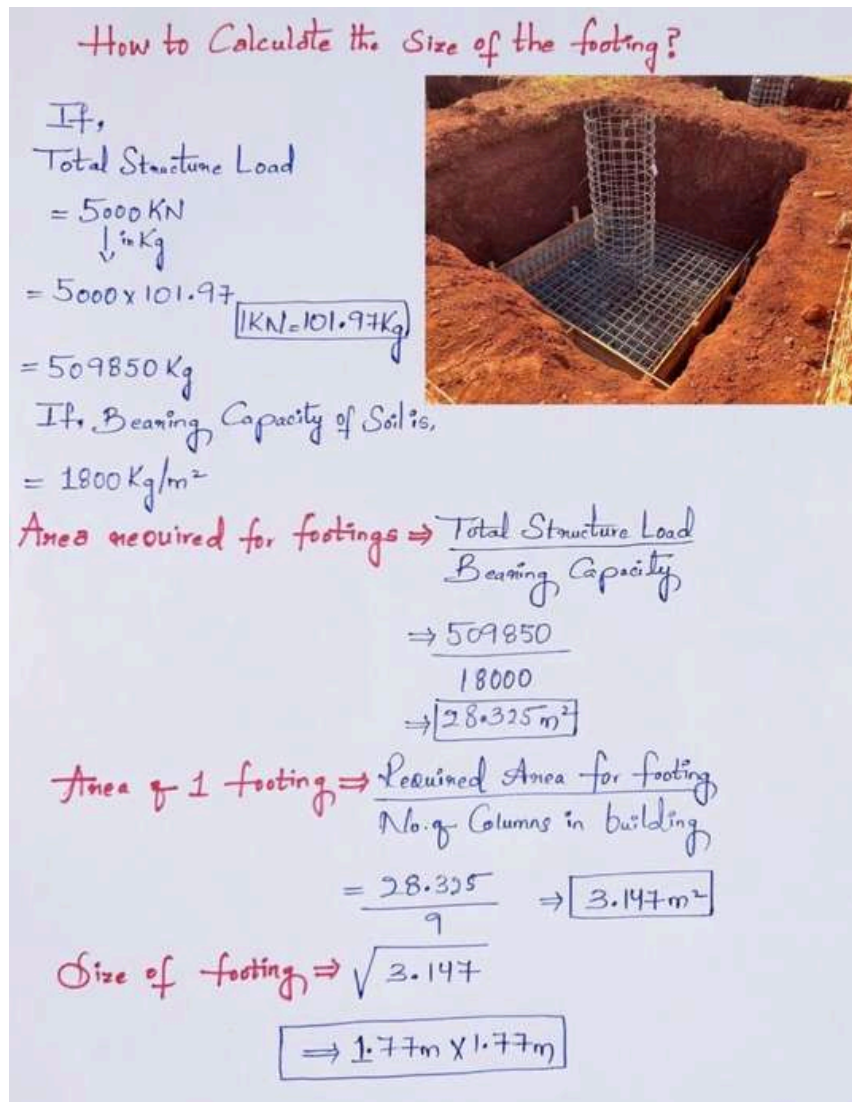 How to Calculate the Size of the footing?
If,
Total Structure Load
= 5000 KN
↓ in Kg
= 5000 x 101.97
1KN=101.97Kg
= 509850 Kg
If, Bearing Capacity of Soil is,
= 1800 Kg/m²
Area required for footings ⇒ Total Structure Load
Bearing Capacity
⇒ 509850
18000
⇒ 28.325 m²
Area of 1 footing ⇒ Required Area for footing
No. of Columns in building
= 28.325
9
⇒ 3.147 m²
Size of footing ⇒ √3.147
⇒ 1.77m x 1.77m